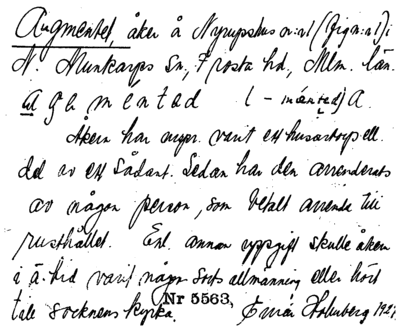 Augmentet, åker å Nyrupshus nr:1 (Frg n:1) i
N. Munkarps Sn, Frosta hd, Mlm. län.
(-mäntəd) A.
Åkern har urspr. varit ett husartorp ell.
del av ett sådant. Sedan har den arrenderats
av någon person, som betalt arrende till
rusthållet. Enl. annan uppgift skulle åkern
i ä. tid varit någon sorts allmänning eller hört
till socknens kyrka.
Nr 5563.
Einar Holmberg 1927.